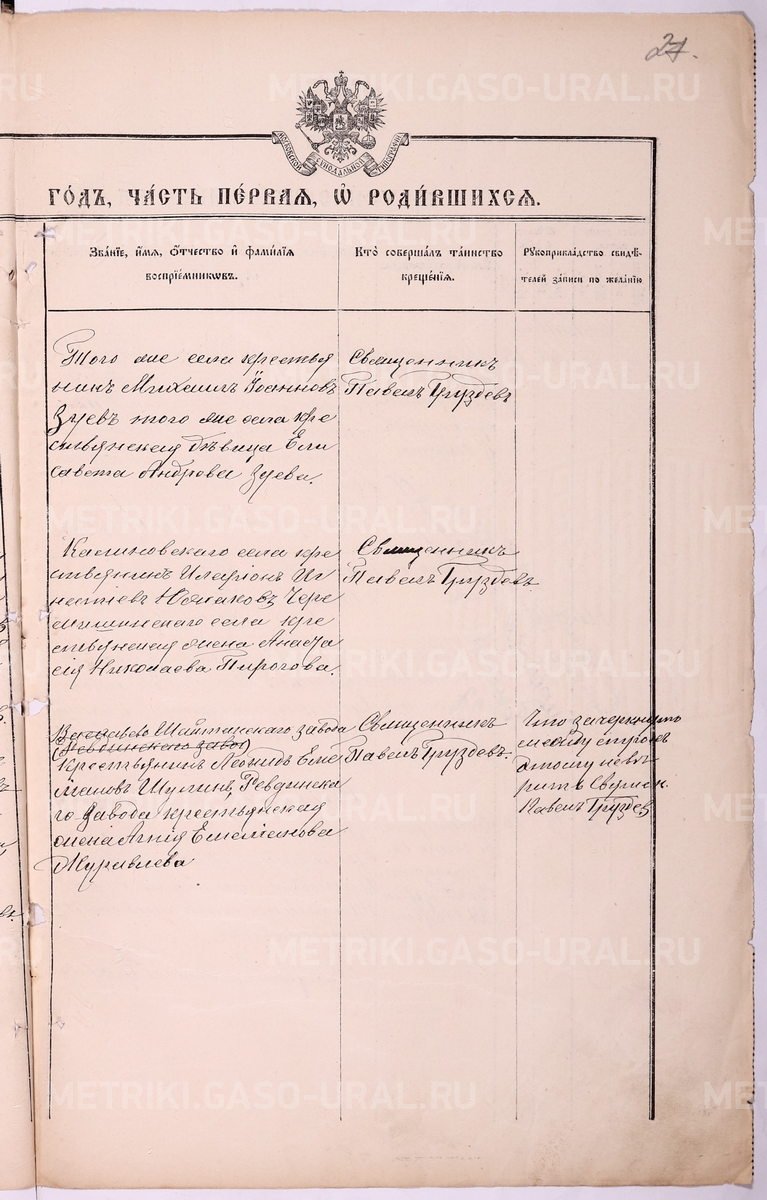 24.
МОСКОВСКОЙ СѴНОДАЛЬНОЙ ТИПОГРАФІИ
ГО́ДЪ, ЧА́СТЬ ПЕ́РВАЯ, Ѡ҆ РОДИ́ВШИХСЯ.
Зва́нїе, и҆́мя, ѻ҆́тчество и҆ фами́лїя
воспрїе́мникѡвъ.
Кто̀ соверша́лъ та́инство
креще́нїѧ.
Рꙋкоприкла́дство свидѣ́-
телей за́писи по жела́нїю
Того же села крестья
нинъ Михаилъ Іоанновъ
Зуевъ того же села кре
стьянская дѣвица Ели
савета Андрова Зуева.
Священникъ
Павелъ Груздевъ
Калиновскаго села кре
стьянинъ Иларіонъ Иг
натіевъ Южаковъ Чере
мишинскаго села кре
стьянская жена Анаста
сія Николаева Пирогова.
Священникъ
Павелъ Груздевъ
Васильево Шайтанскаго завода
(Невьинскаго завод)
крестьянинъ Леонидъ Еме
льяновъ Шулинъ, Ревдинска
го завода крестьянская
жена Агнія Емельянова
Журавлева
Священникъ
Павелъ Груздевъ.
Что зачеркнуто
между строкъ
тому невѣ
рить Священ.
Павелъ Груздев
METRIKI.GASO-URAL.RU